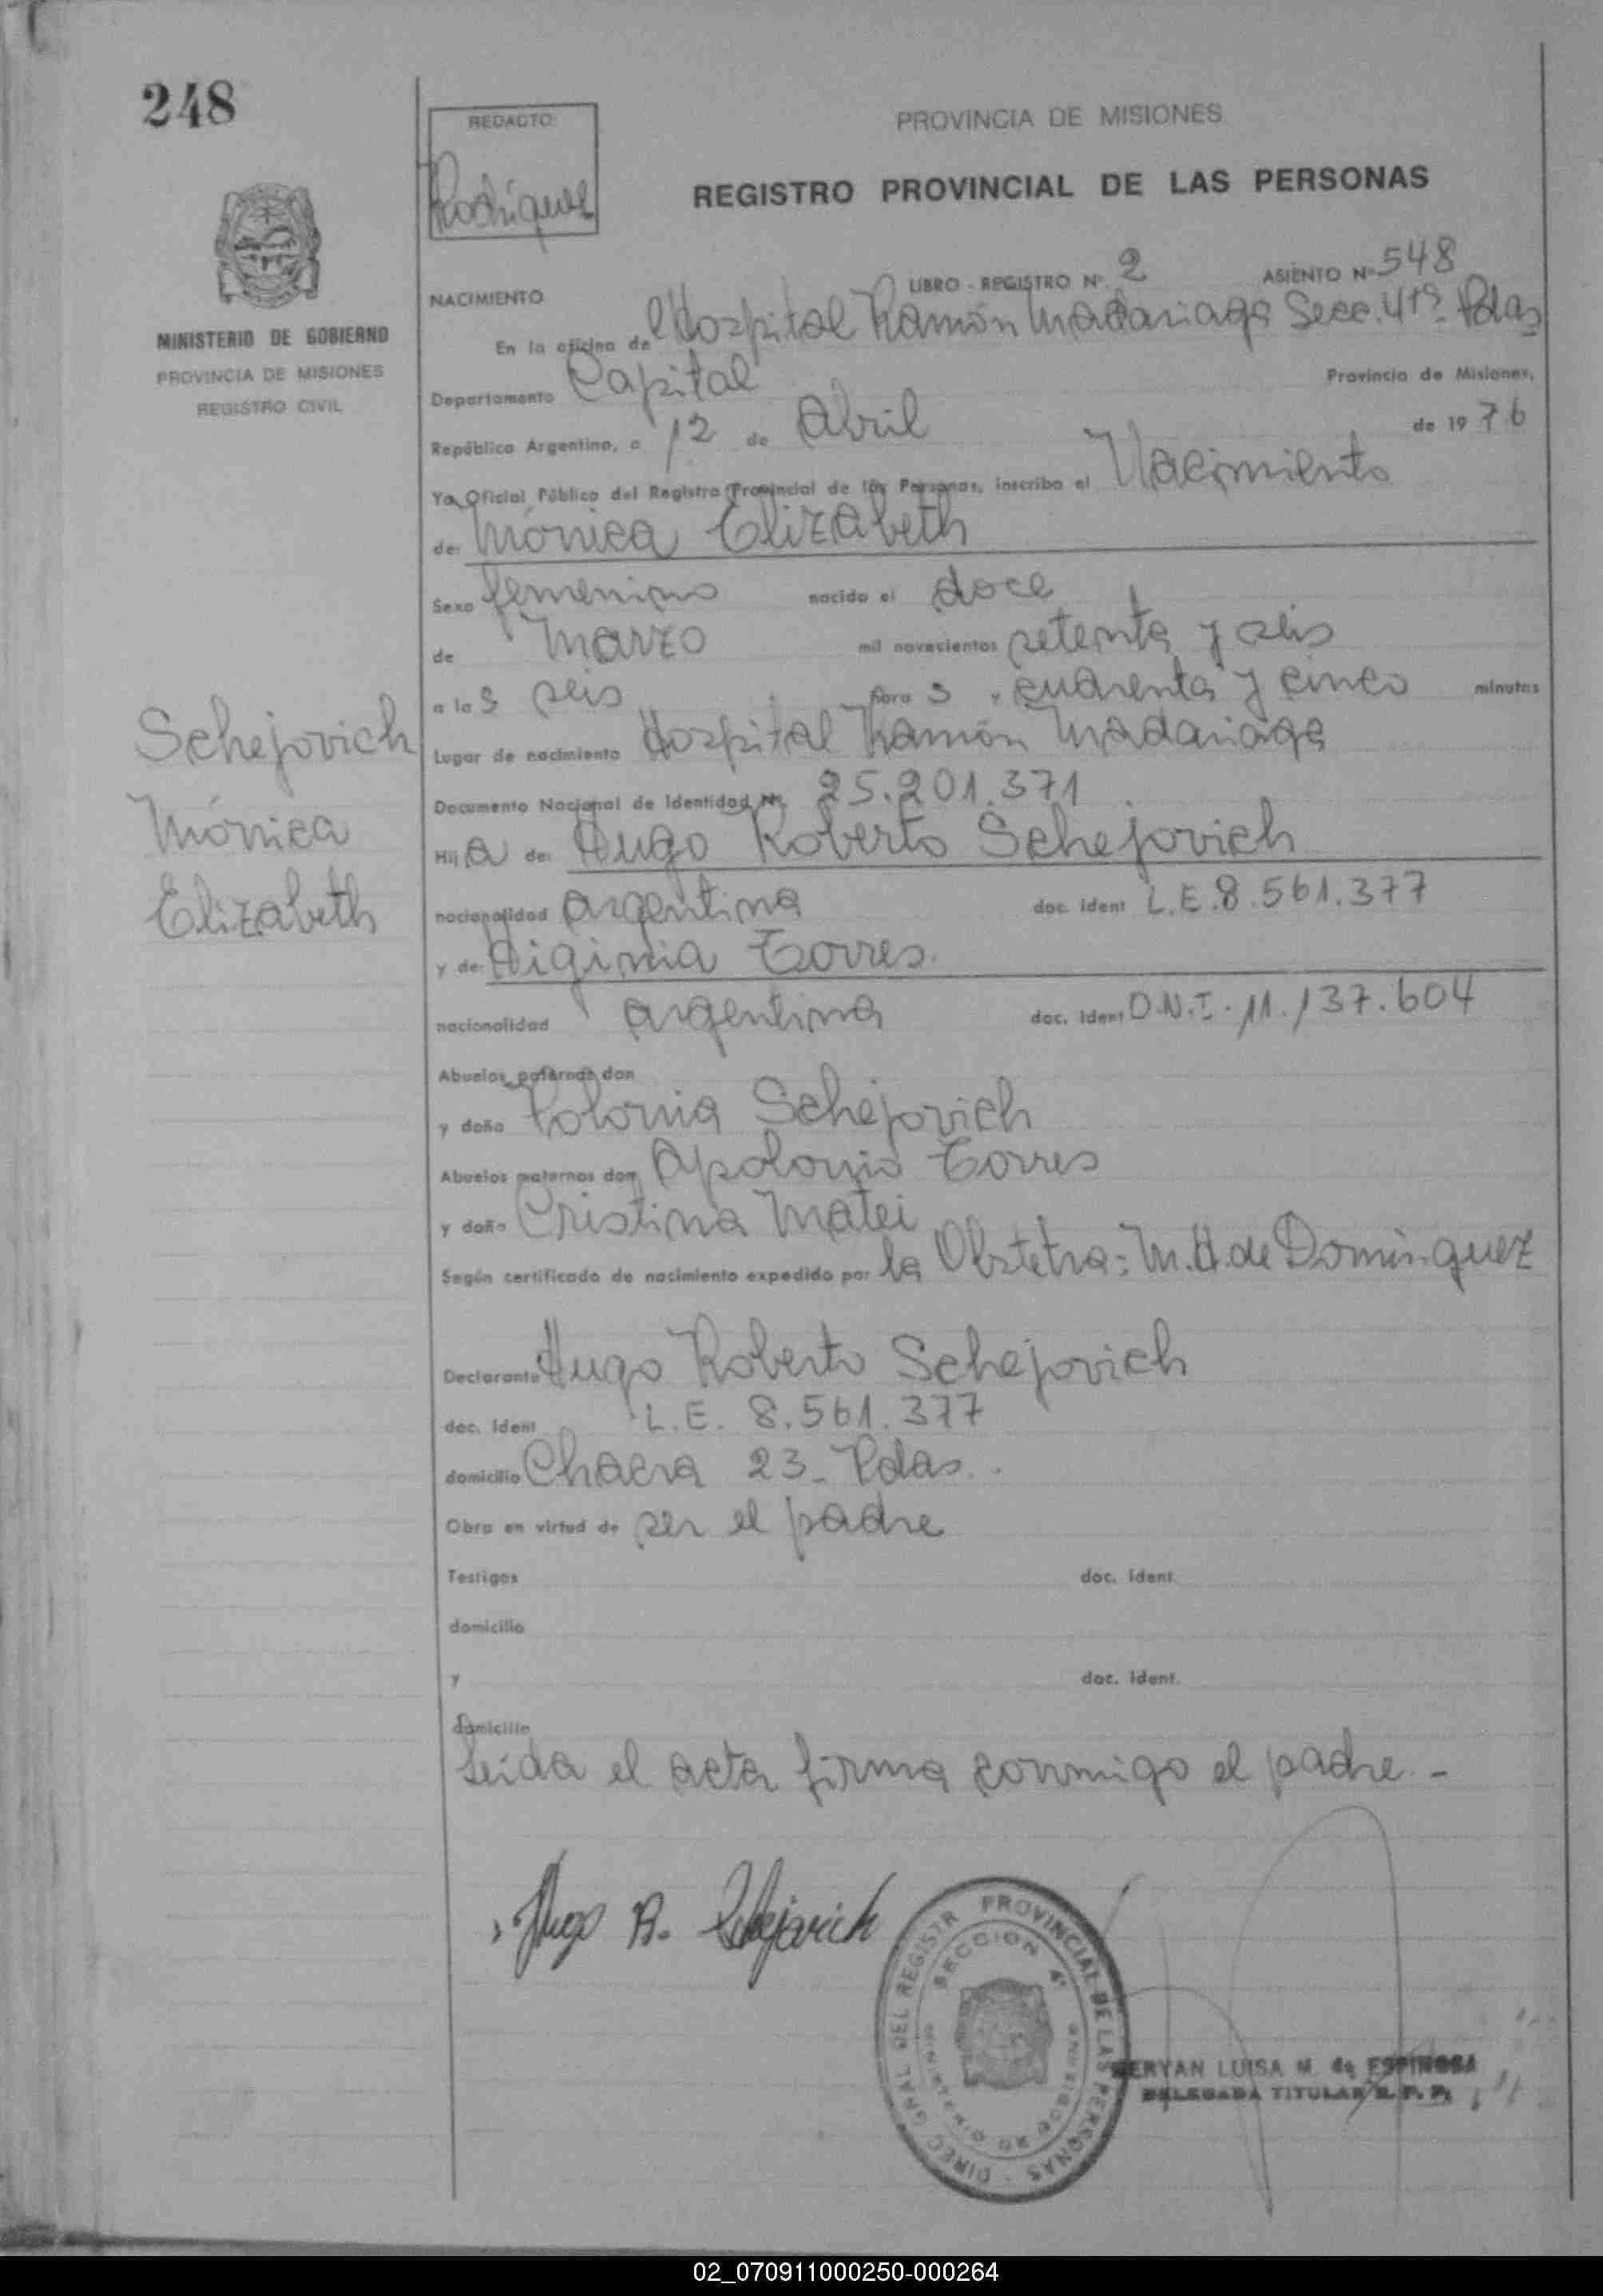 248
REDACTO:
Rodriguez
PROVINCIA DE MISIONES
REGISTRO PROVINCIAL DE LAS PERSONAS
MINISTERIO DE GOBIERNO
PROVINCIA DE MISIONES
REGISTRO CIVIL
LIBRO - REGISTRO Nº. 2 ASIENTO Nº 548
NACIMIENTO
En la oficina de Hospital Ramón Madariaga Secc. 4ta. Pdas
Departamento Capital Provincia de Misiones,
República Argentina, a 12 de Abril de 1976
Yo, Oficial Público del Registro Provincial de las Personas, inscribo el Nacimiento
de: Mónica Elizabeth
Sexo femenino nacido el doce
de Marzo mil novecientos setenta y seis
a las seis hora s y cuarenta y cinco minutos
Lugar de nacimiento Hospital Ramón Madariaga
Documento Nacional de Identidad Nº. 25.201.371
Hija de: Hugo Roberto Schejovich
nacionalidad argentina doc. ident L.E. 8.561.377
y de: Higinia Torres.
nacionalidad argentina doc. ident D.N.I. 11.137.604
Abuelos paternos don
y doña Polonia Schejovich
Abuelos maternos don Apolonio Torres
y doña Cristina Matei
Según certificado de nacimiento expedido por la Obstetra: M.H. de Dominguez
Schejovich
Mónica
Elizabeth
Declarante Hugo Roberto Schejovich
doc. ident L.E. 8.561.377
domicilio Chacra 23 - Pdas.
Obra en virtud de ser el padre
Testigos doc. ident.
domicilio
y doc. ident.
domicilio
Leída el acta firma conmigo el padre. -
Hugo R. Schejovich
DIREC. GRAL DEL REGISTR PROVINCIAL DE LAS PERSONAS
SECCION 4ª
MINISTERIO DE GOBIERNO
LUISA M. de ESPINOSA
DELEGADA TITULAR R. P. P.
02_070911000250-000264